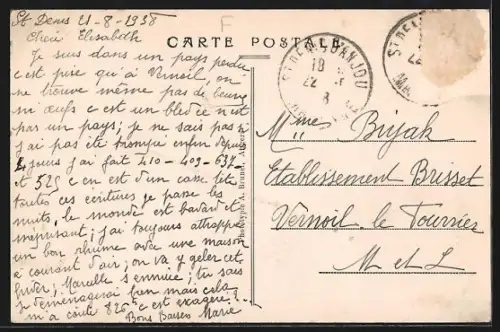 St Denis 21-8-1938
Chère Elisabeth
Je suis dans un pays perdu
c est pire qu'à Vernoil, on
ne trouve même pas de beurre
ni œufs c est un bled ce n'est
pas un pays; je ne sais pas si
j'ai pas été trompée enfin depuis
4 jours j'ai fait 410 - 409 - 637
et 525 c en est d'un casse tête
toutes ces écritures je passe les
nuits, le monde est bavard et
méprisant; j'ai toujours attrappé
un bon rhume avec une maison
à courant d'air; on va y geler cet
hiver; Marcelle s'ennuie; tu sais
je déménagerai bien mais cela
m'a coûté 826 c est exagéré?..
Bons Baisers Marie
F
CARTE POSTALE
Phototypie A. Bruel, Angers
ST DENIS D'ANJOU
18
22
8
ST DE
22
MA
Mme Bujak
Etablissement Brisset
Vernoil le Fourrier
M et L